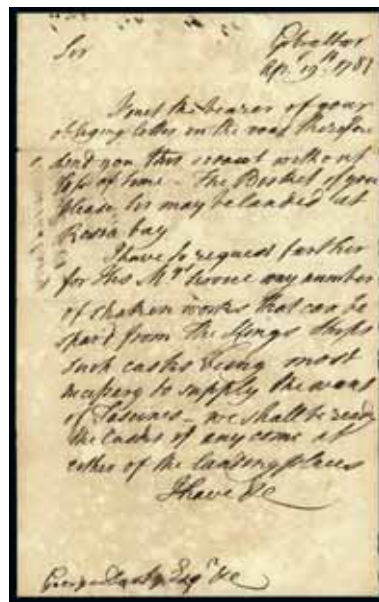 Sir
Gibraltar
Apr. 19th 1781
I met the bearer of your
obliging letter in the road therefore
send you this without
loss of time - The if you
please Sir may be landed at
Rosia bay
I have to request further
for His M. any number
of shaken that can be
spar'd from the Kings Ships
such casks being most
necessary to supply the want
of Fascines - we shall be ready
the Casks if any come at
either of the landing places
I have &c
George Darby Esqr &c